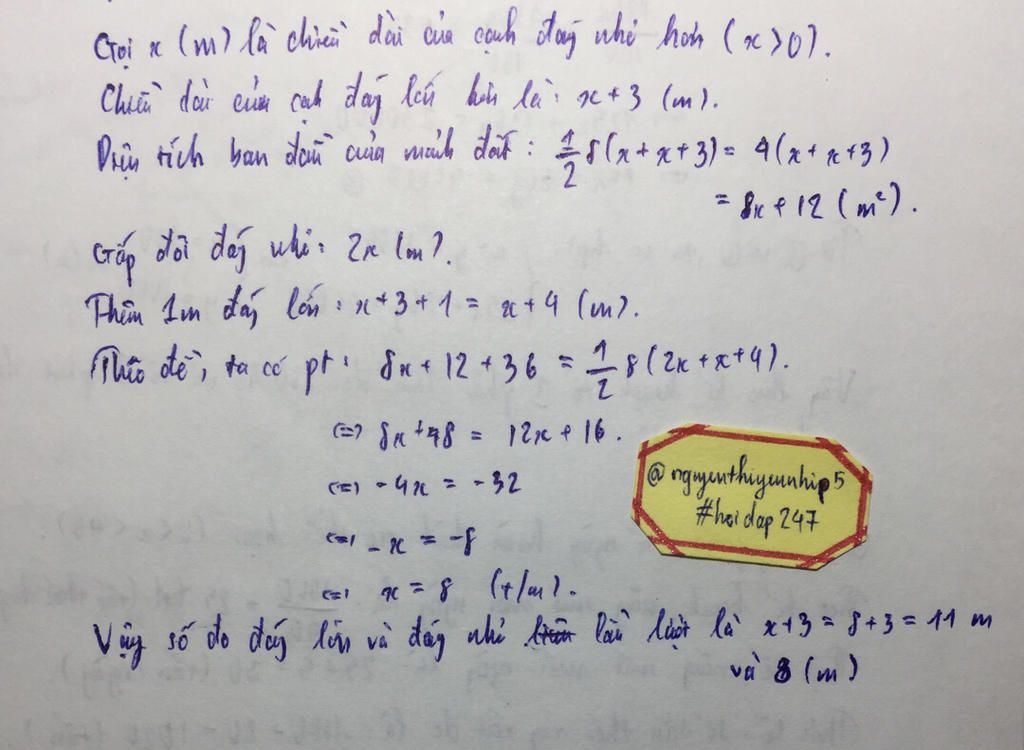 Gọi x (m) là chiều dài của cạnh đáy nhỏ hơn (x>0).
Chiều dài của cạh đáy lớn hơn là: x+3 (m).
Diện tích ban đầu của mảnh đất: 1/2 8(x+x+3) = 4(x+x+3)
= 8x+12 (m²).
Gấp đôi đáy nhỏ: 2x (m).
Thêm 1m đáy lớn: x+3+1 = x+4 (m).
Theo đề, ta có pt: 8x+12+36 = 1/2 8(2x+x+4).
<=> 8x+48 = 12x+16.
<=> -4x = -32
<=> -x = -8
<=> x = 8 (t/m).
Vậy số đo đáy lớn và đáy nhỏ lần lượt là x+3 = 8+3 = 11 m
và 8 (m)
@nguyenthiyeunhip5
#hoidap247